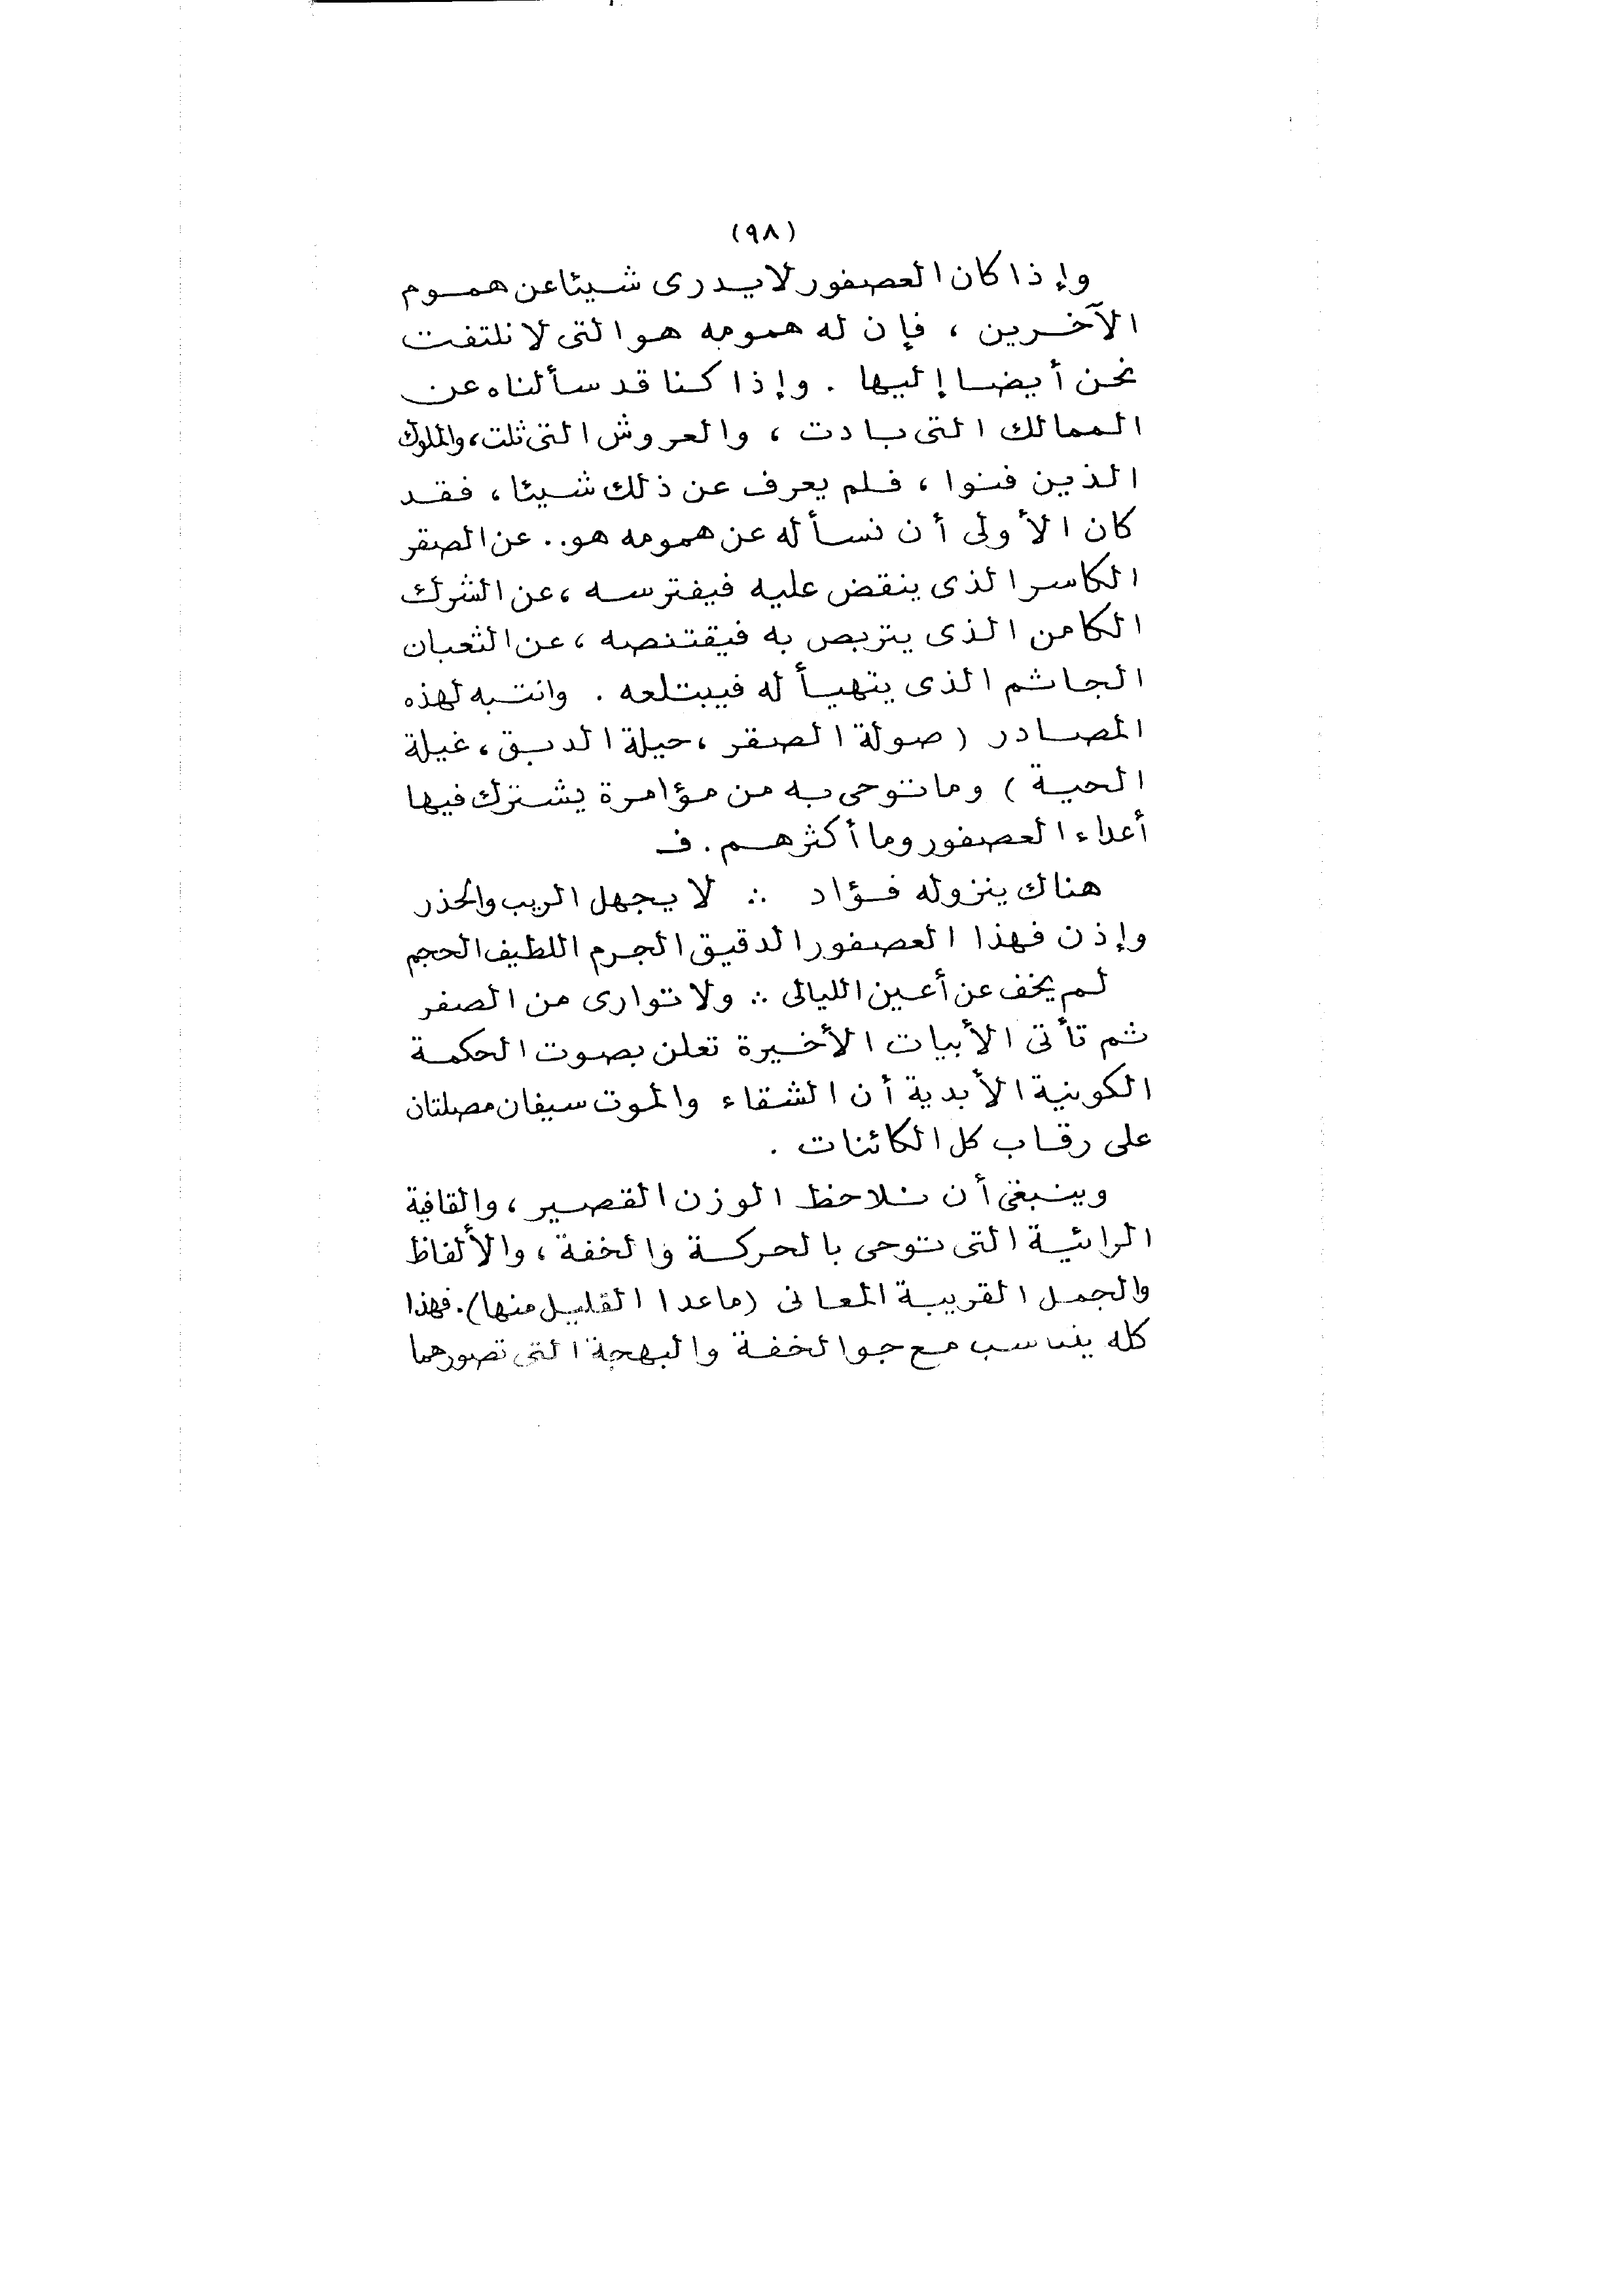 (٩٨)
وإذا كان العصفور لا يدرى شيئا عن همـوم
الآخـرين ، فإن له همومه هو التى لا نلتفت
نحن أيضـا إليها . وإذا كـنـا قد سألناه عن
الممالك التى بـادت ، والعروش التى ثلت، والملوك
الذين فنوا ، فـلم يعرف عن ذلك شـيئا ، فـقـد
كان الأولى أن نسأله عن همومه هو.. عن الصقر
الكاسر الذى ينقض عليه فيفترسـه ، عن الشرك
الكامن الذى يتربص به فيقتنصه ، عن الثعبان
الجـاثم الذى يتهيـأ له فيبتلعه . وانتـبه لهذه
المصـادر ( صولة الصقر ، حيلة الدبـق ، غيلة
الحيـة ) وما تـوحى بـه من مؤامرة يشـترك فيها
أعداء العصفور وما أكثرهـم . فـ
هناك ينزو له فـؤاد ∴ لا يـجهل الريب والحذر
وإذن فهذا العصفور الدقيق الجرم اللطيف الحجم
لـم يخف عن أعـين الليالى ∴ ولا توارى من الصغر
ثم تأتى الأبيات الأخـيرة تعلن بصوت الحكمـة
الكونية الأبدية أن الشقاء والموت سيفان مصلتان
على رقـاب كل الكائنات .
وينـبغى أن نـلاحظ الوزن القصـير ، والقافية
الرائيـة التى تـوحى بالحركـة والخفة ، والألفاظ
والجمـل القريبـة المعانى (ما عدا القليـل منها). فهذا
كله يتناسب مـع جو الخفـة والبهجة التى تصورهما